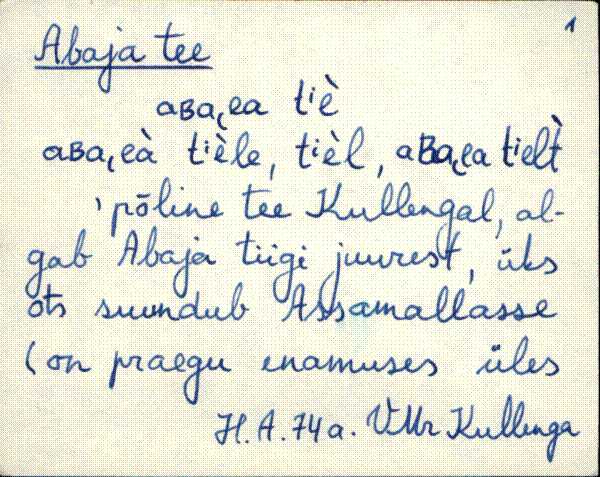 1
Abaja tee
aʙaꞔea tiè
aʙaꞔeà tièle, tièl, aʙaꞔea tielt̀
'põline tee Kullengal, al-
gab Abaja tiigi juurest, üks
ots suundub Assamallasse
(on praegu enamuses üles
H.A. 74 a. VMr Kullenga